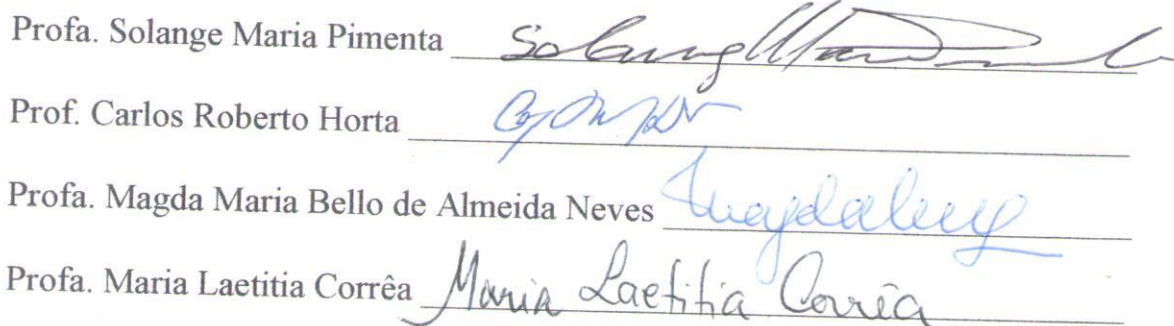 Profa. Solange Maria Pimenta Solange
Prof. Carlos Roberto Horta
Profa. Magda Maria Bello de Almeida Neves
Profa. Maria Laetitia Corrêa Maria Laetitia Corrêa